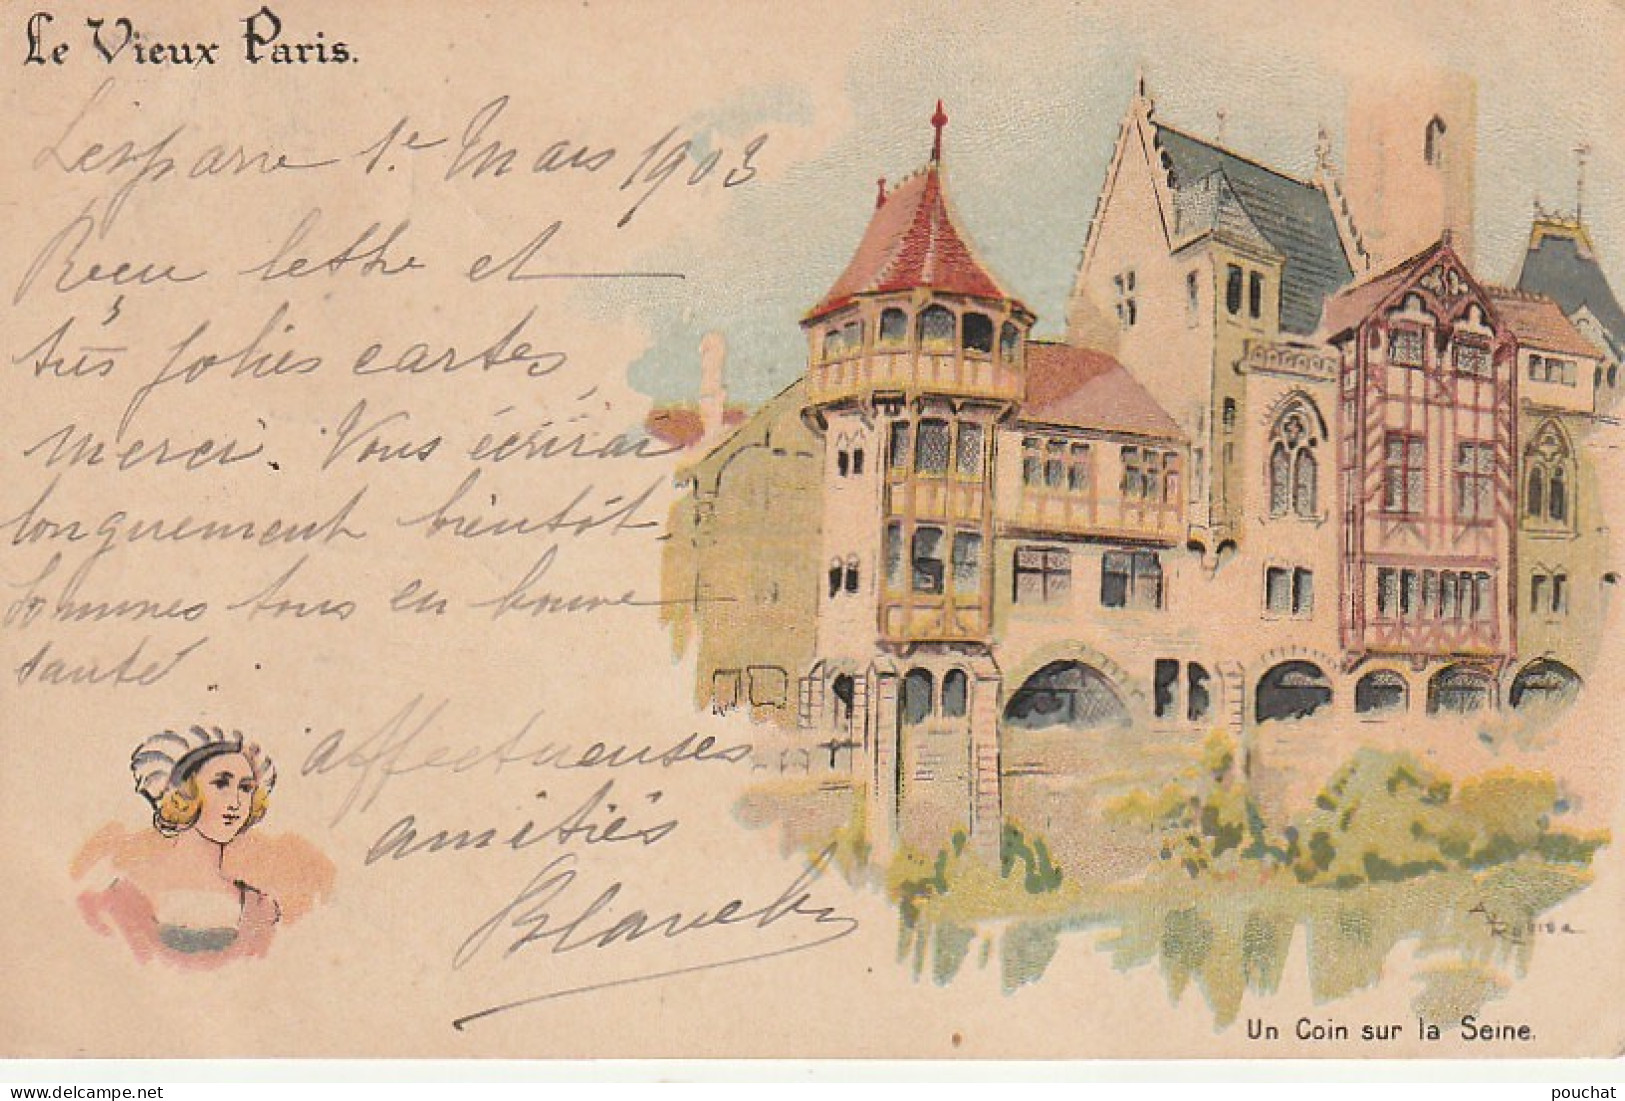 Le Vieux Paris.
Lesparre 1er Mars 1903
Reçu lettre et
très jolies cartes,
merci. Vous écrirai
longuement bientôt.
Sommes tous en bonne
santé.
affectueuses
amitiés
Blanche
Un Coin sur la Seine.
pouchat